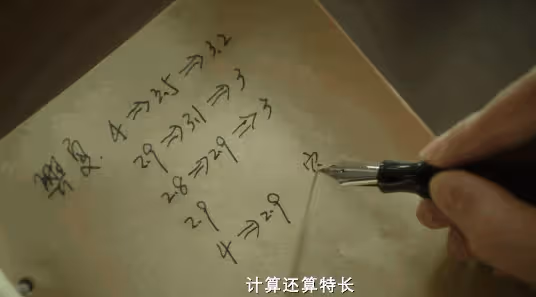 4⇒3.5⇒3.2
2.9⇒3.1⇒3
2.8⇒2.9⇒3
2.9
4⇒2.9
计算还算特长